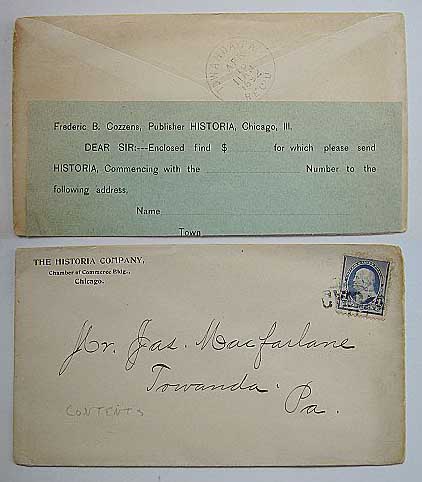 Frederic B. Cozzens, Publisher HISTORIA, Chicago, Ill.
DEAR SIR:---Enclosed find $ for which please send
HISTORIA, Commencing with the Number to the
following address,
Name
Town
THE HISTORIA COMPANY,
Chamber of Commerce Bldg.,
Chicago.
Mr. Jas. Macfarlane
Towanda
Pa.
CONTENTS